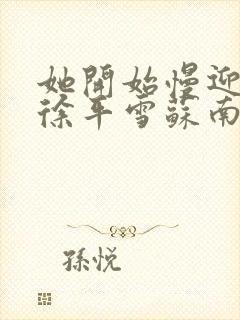 她開始慢迎
徐平雪蘇南
孫悅